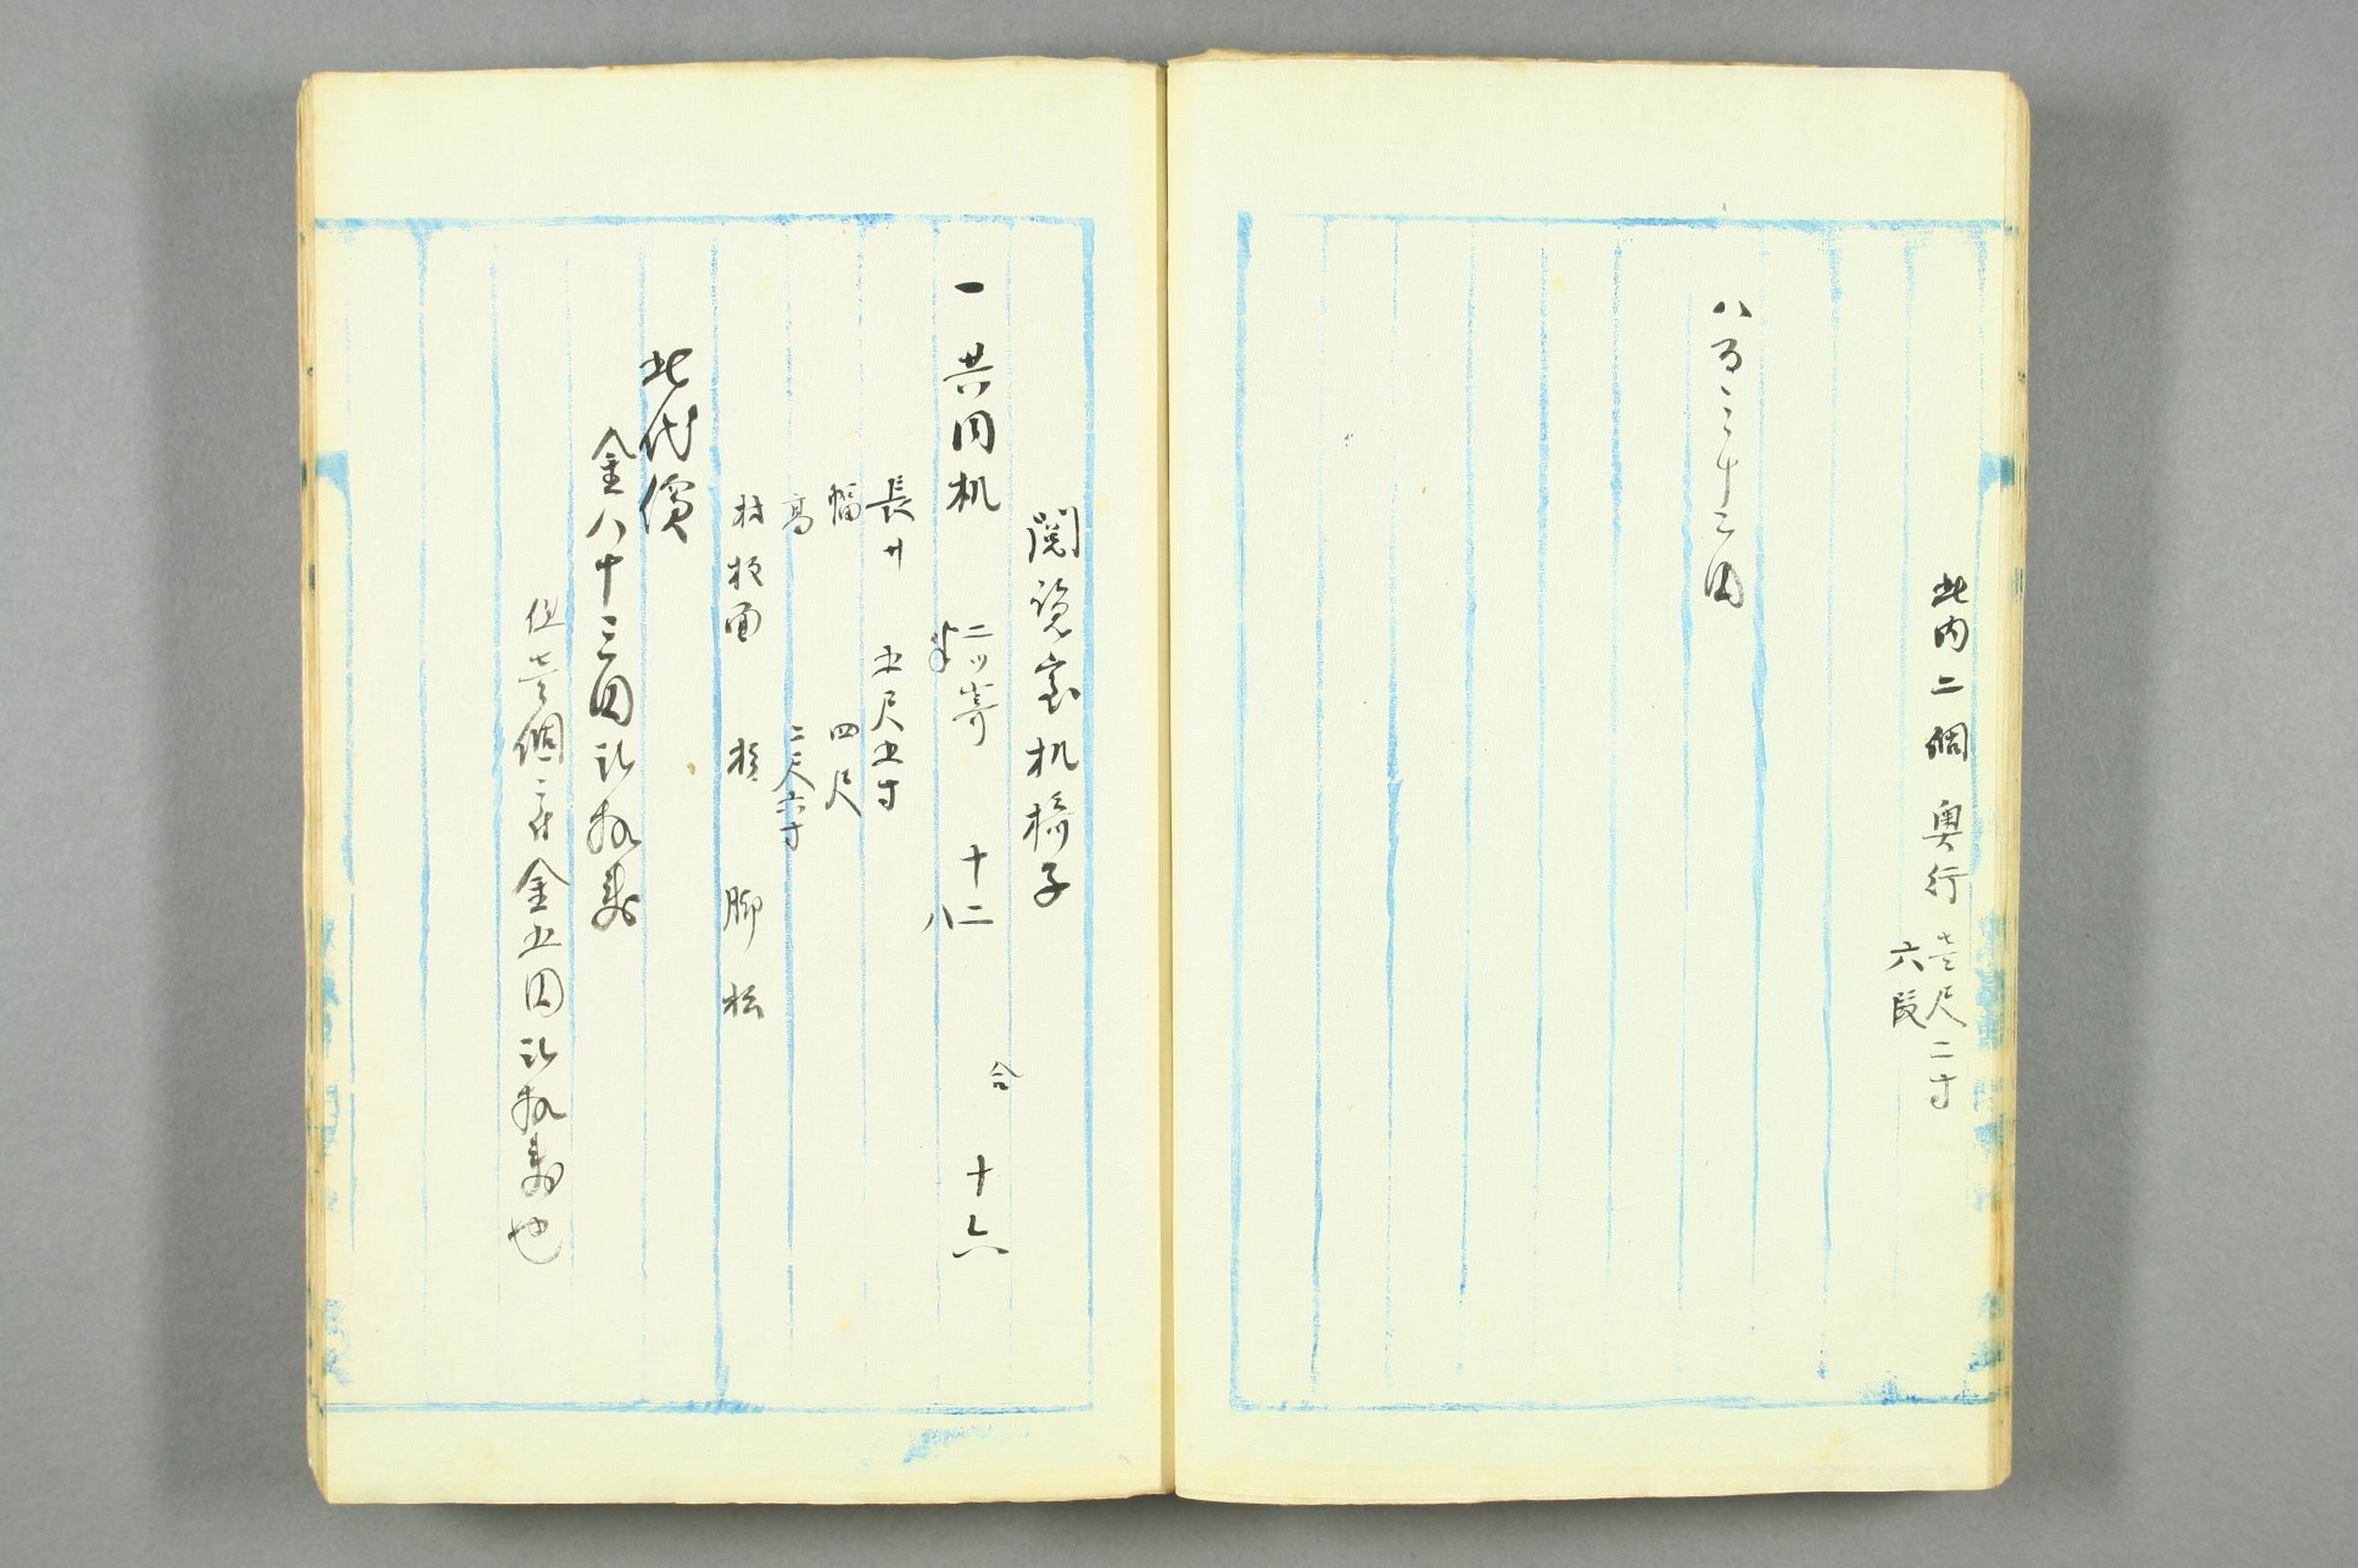 此内二個 奥行 壱尺二寸
六段
八百三十三円
閲覧室机椅子
一 共同机 二ツ寄 十二 合 十六
八
長サ 五尺五寸
幅 四尺
高 二尺六寸
材 板面 桜 脚 松
此代價
金八十三円
但壱個ニ付金五円
也